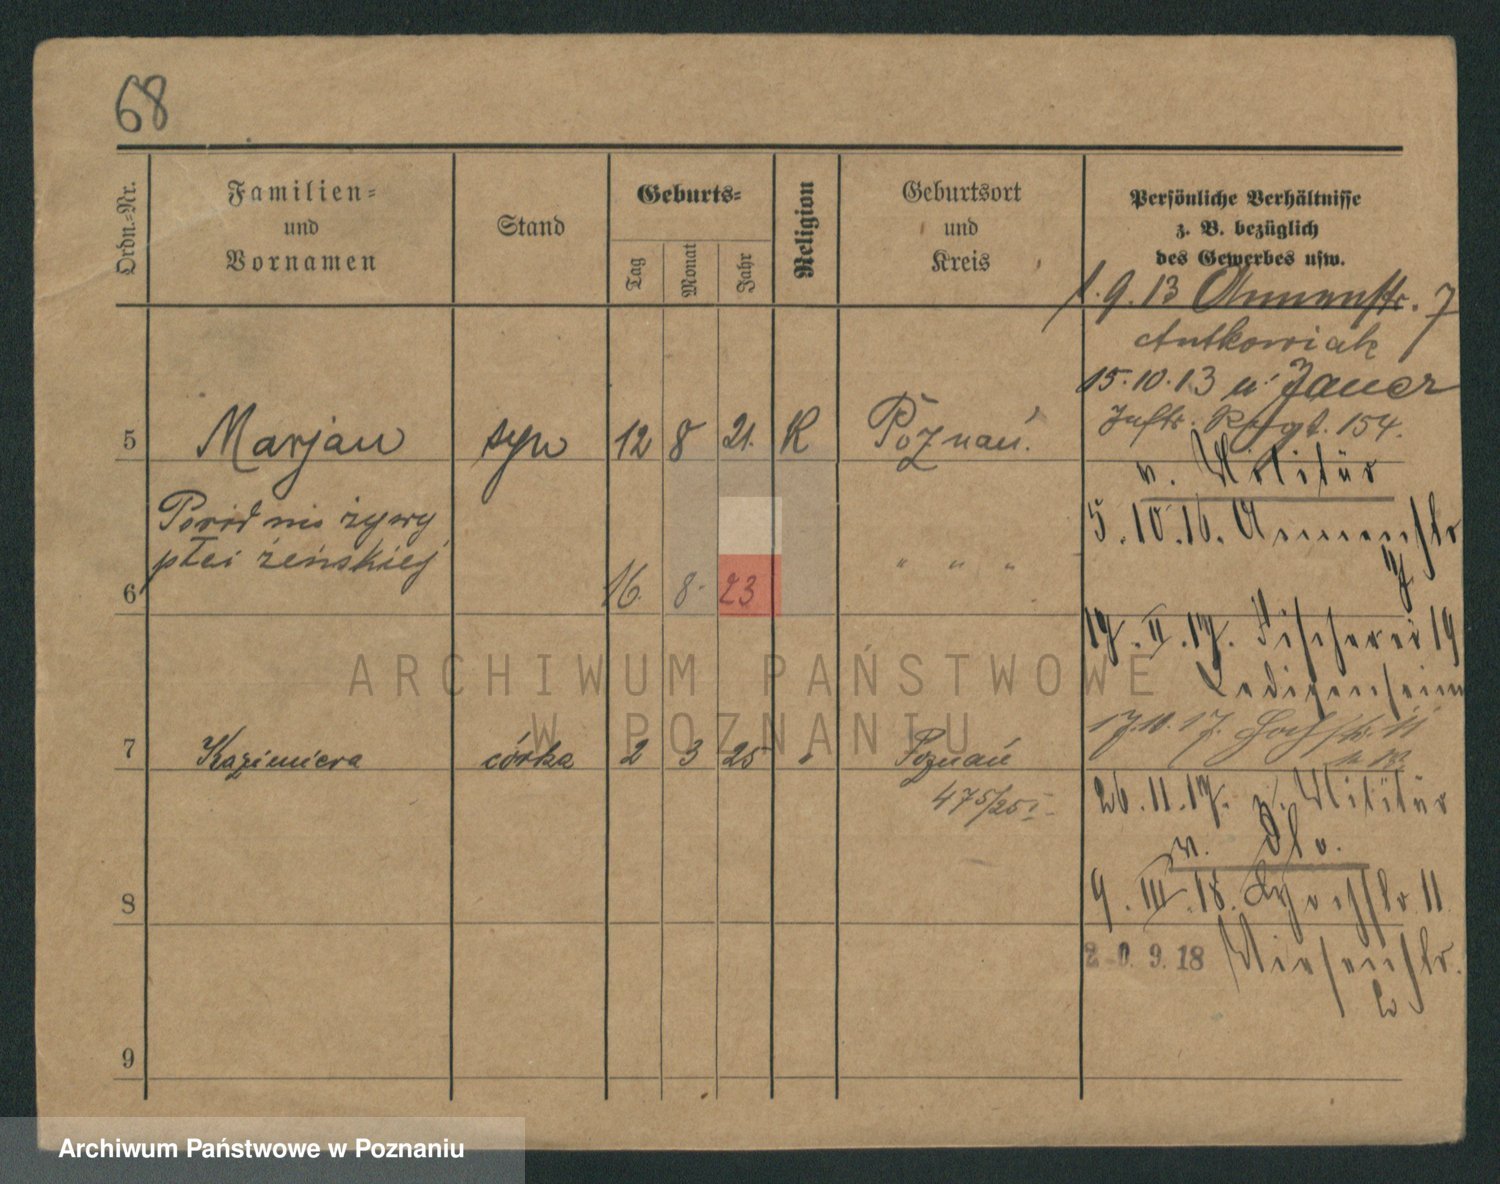 68
Ordn.-Nr.
Familien-
und
Vornamen
Stand
Geburts-
Tag
Monat
Jahr
Religion
Geburtsort
und
Kreis
Persönliche Verhältnisse
z. B. bezüglich
des Gewerbes usw.
1.9.13 Annenstr. 7
Antkowiak
15.10.13 n. Jauer
Inftr. Regt. 154.
v. Militär
5 Marjan syn 12 8 21. R Poznań.
5.10.16. Annenstr
7
Poród nieżywy
płci żeńskiej
6 16. 8. 23 " " "
17.II.17. Fischerei 19
Ledigenheim
ARCHIWUM PAŃSTWOWE
W POZNANIU
17.10.17. 11
7 Kazimiera córka 2 3 25 " Poznań
475/25 I
26.11.17. z. Militär
v. Dto.
8
9.III.18. 11
20.9.18 Wiesenstr.
9
Archiwum Państwowe w Poznaniu